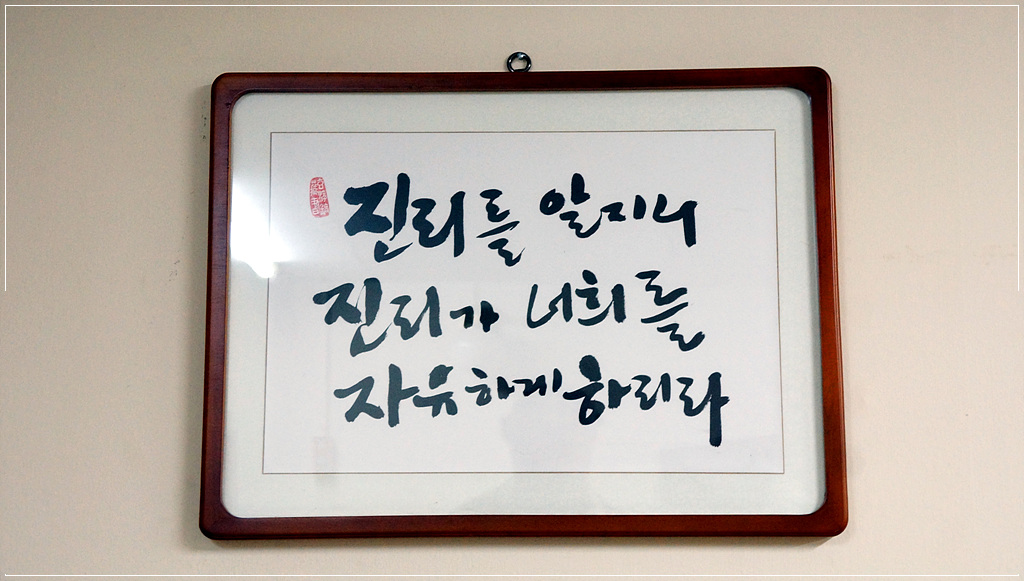 진리를 알지니
진리가 너희를
자유하게 하리라